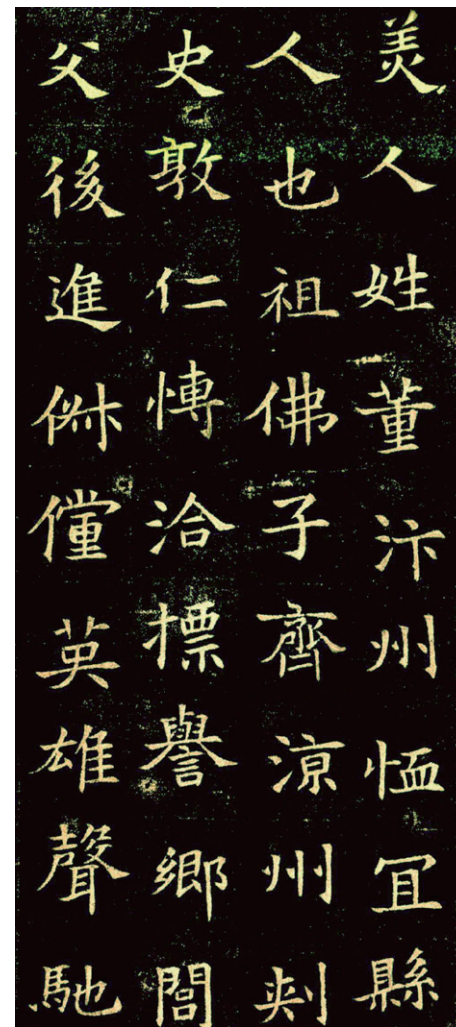 美人姓董汴州恤冝縣
人也祖佛子齊涼州刾
史敦仁愽洽摽譽鄉閭
父後進俶儻英雄聲馳